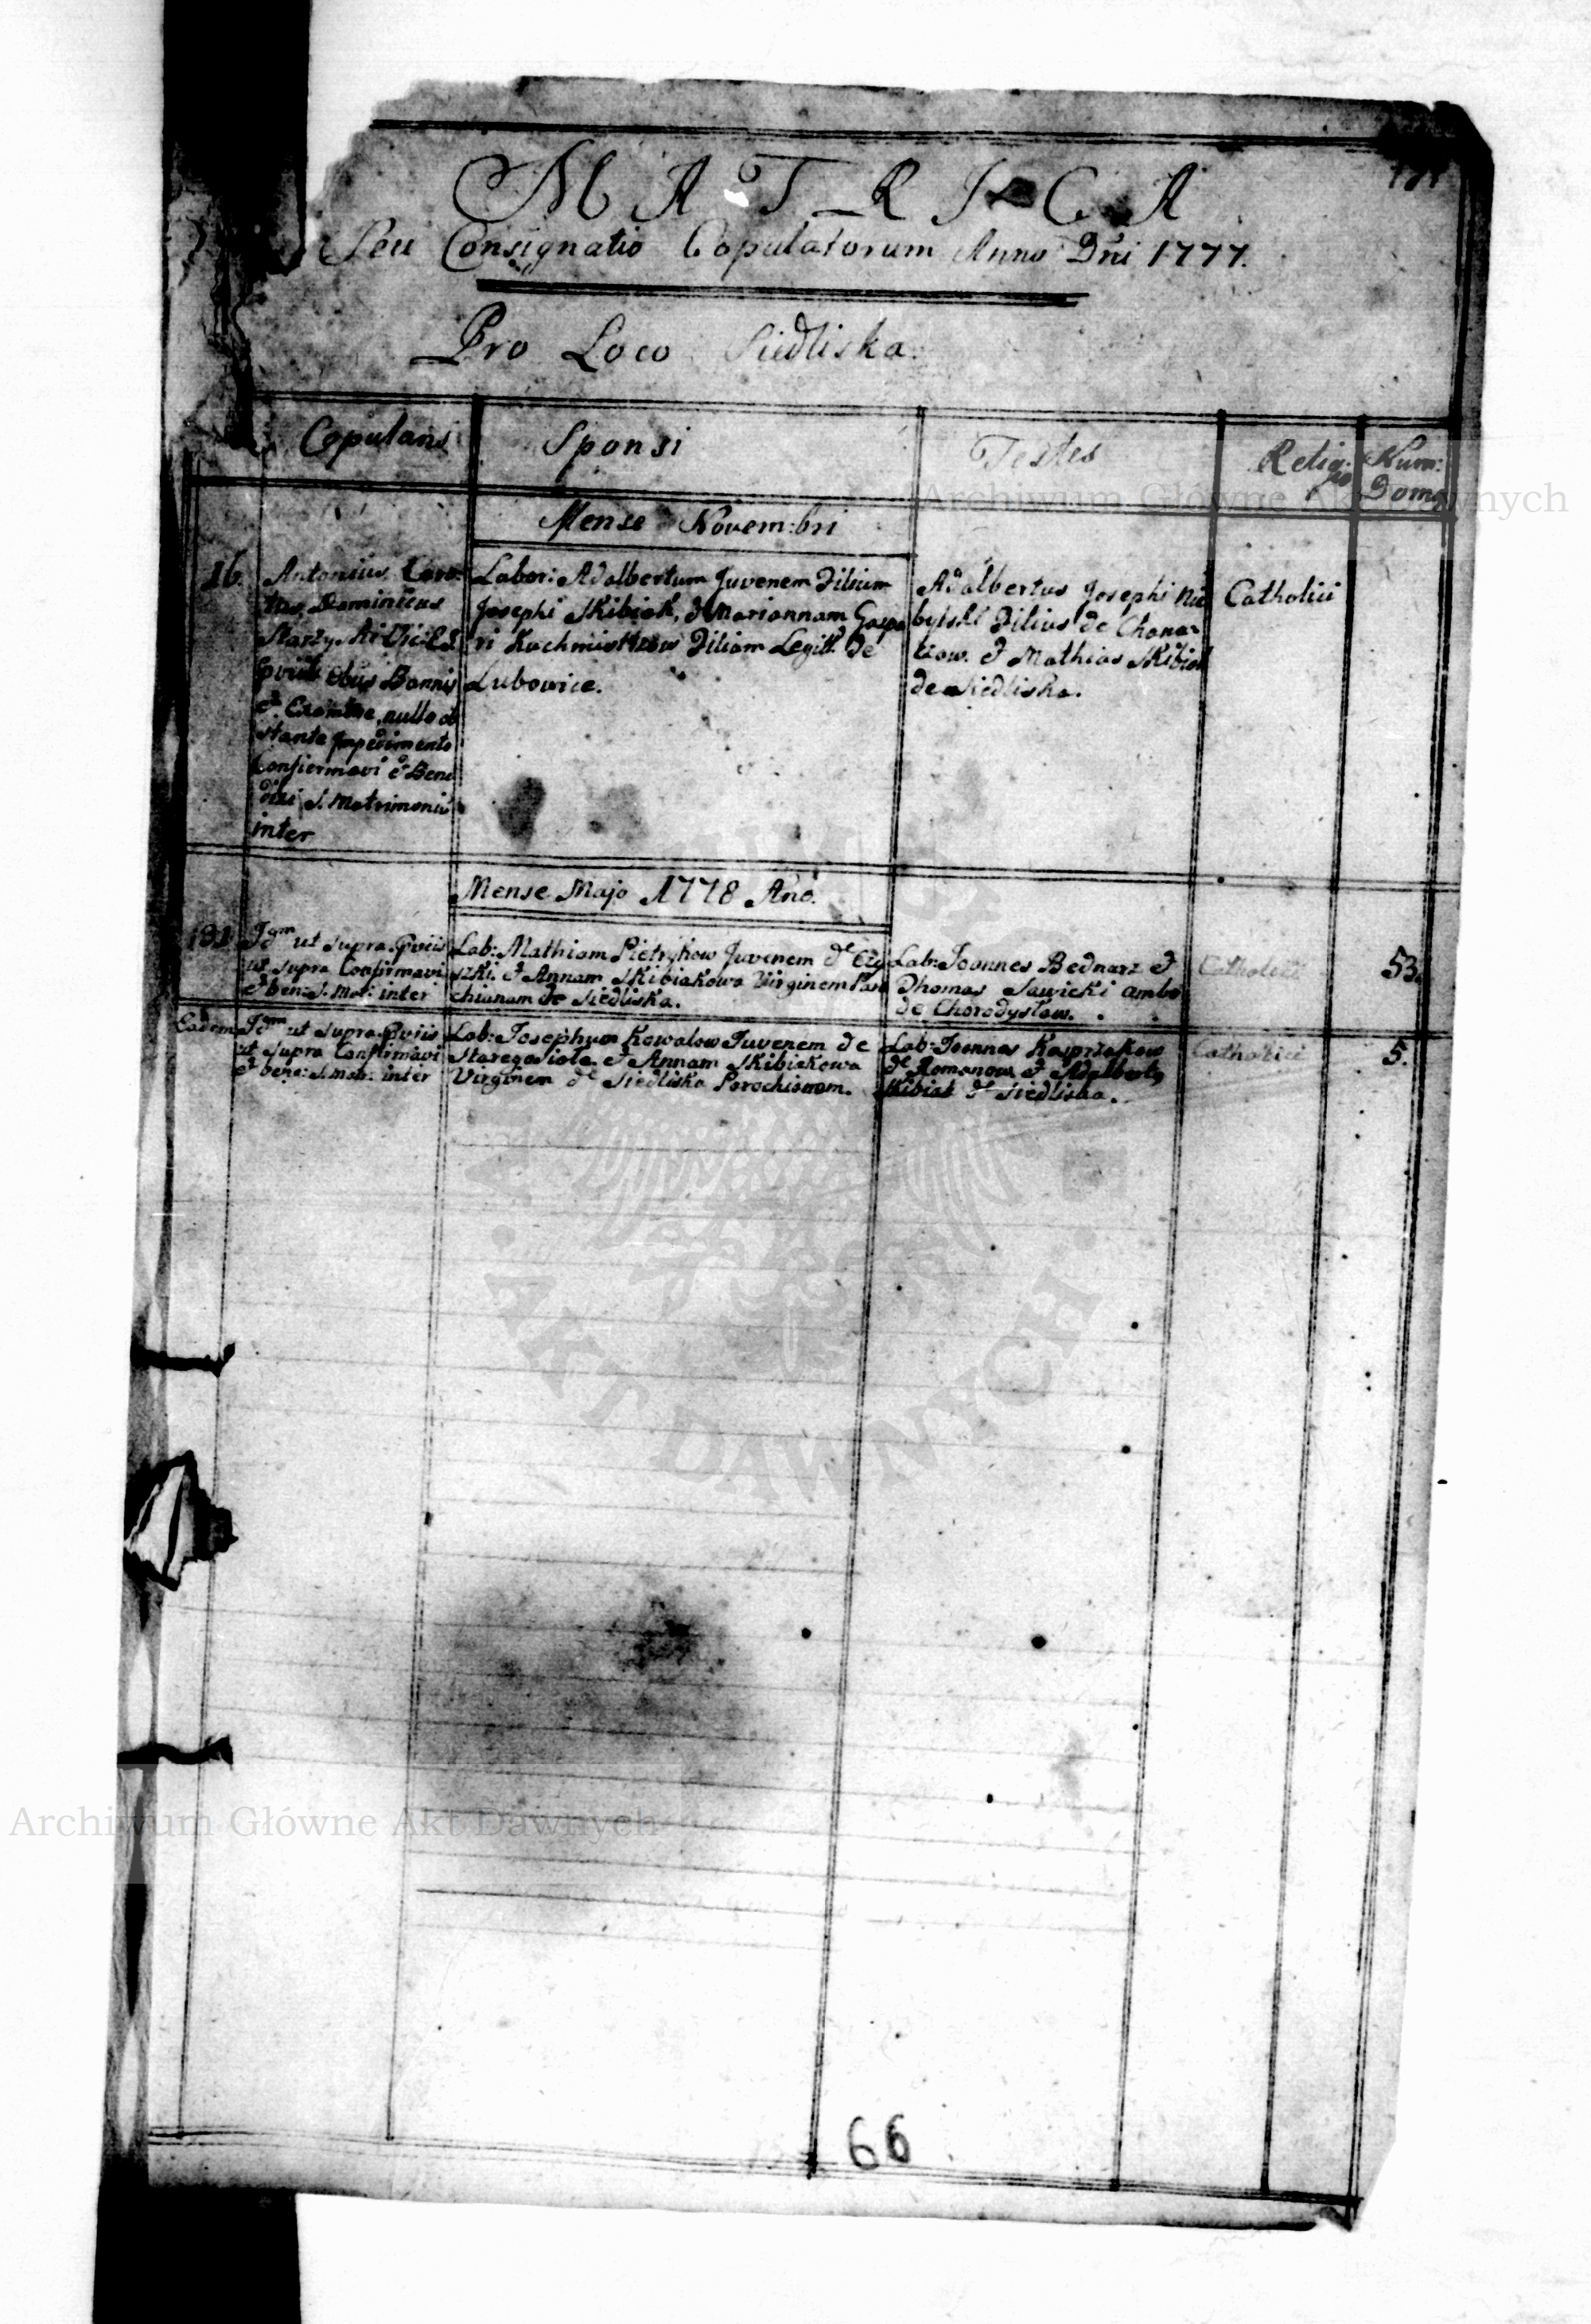 MATRICA
Seu Consignatio Copulatorum Anno Dñi 1777.
Pro Loco Siedliska.
Copulans
Sponsi
Testes
Relig:
Num:
Domq
Mense Novem:bri
16.
Antonius
Dominicus
et nullo ob
stante Impedimento
Confiermavi et Bene
dixi S. Matrimoniū
inter
Labor: Adalbertum Juvenem Filium
Josephi Skibiak, et Mariannam Gaspa
ri Filiam Legitt. de
Lubowice.
Adalbertus Josephi Nie
bylski Filius de Chana:
czow. et Mathias Skibiak
de Siedliska.
Catholici
Mense Majo 1778 Año.
Idm ut supra
ut supra Confirmavi
et ben: S. Mat: inter
Lab: Mathiam Pietrykow Juvenem de Czy
szki. et Annam Skibiakowa Virginem Paro
chianam de Siedliska.
Lab: Joannes Bednarz et
Thomas Sawicki ambo
de Chorodyslaw.
Catholici
53.
Eadem
Idm ut supra
ut supra Confirmavi
et bene: S. Mat: inter
Lab: Josephum Kowalow Juvenem de
Staregosiola et Annam Skibiakowa
Virginem de Siedliska Parochianam.
Lab: Joannes Kasprzakow
de Romanow et Adalbertq
Skibiak de Siedliska.
Catholici
5.
66
Archiwum Główne Akt Dawnych
Archiwum Główne Akt Dawnych
AKT DAWNYCH